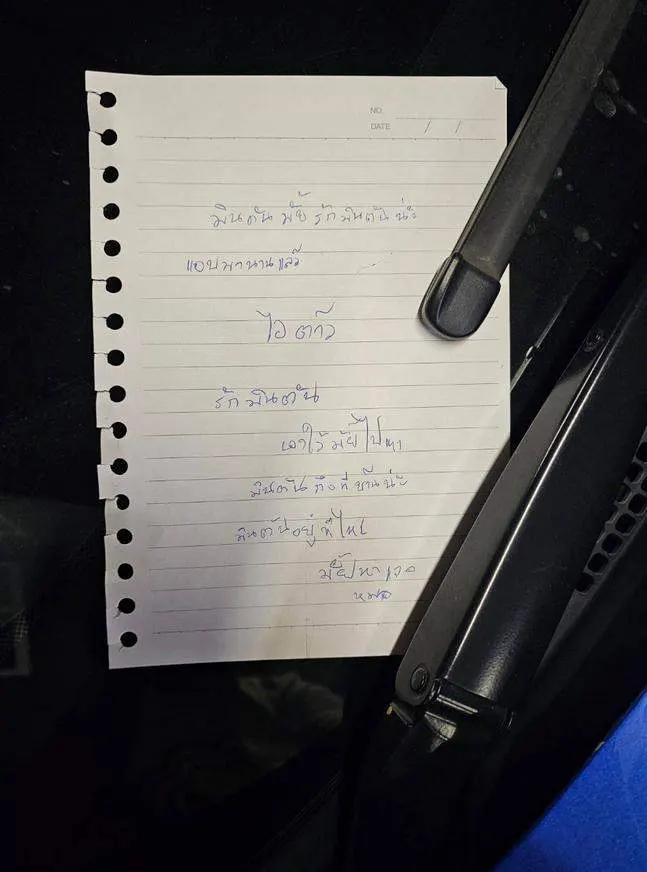 NO.
DATE / /
มินตัน มัย รัก มินตัน น่ะ
แอบมานานแล้ว
ไอ ต้าว
รัก มินตัน
เอาไว้ มัย ไปหา
มินตัน ถึงที่ บ้าน น่ะ
มินตันอยู่ที่ไหน
มัย หาเจอ
หมด